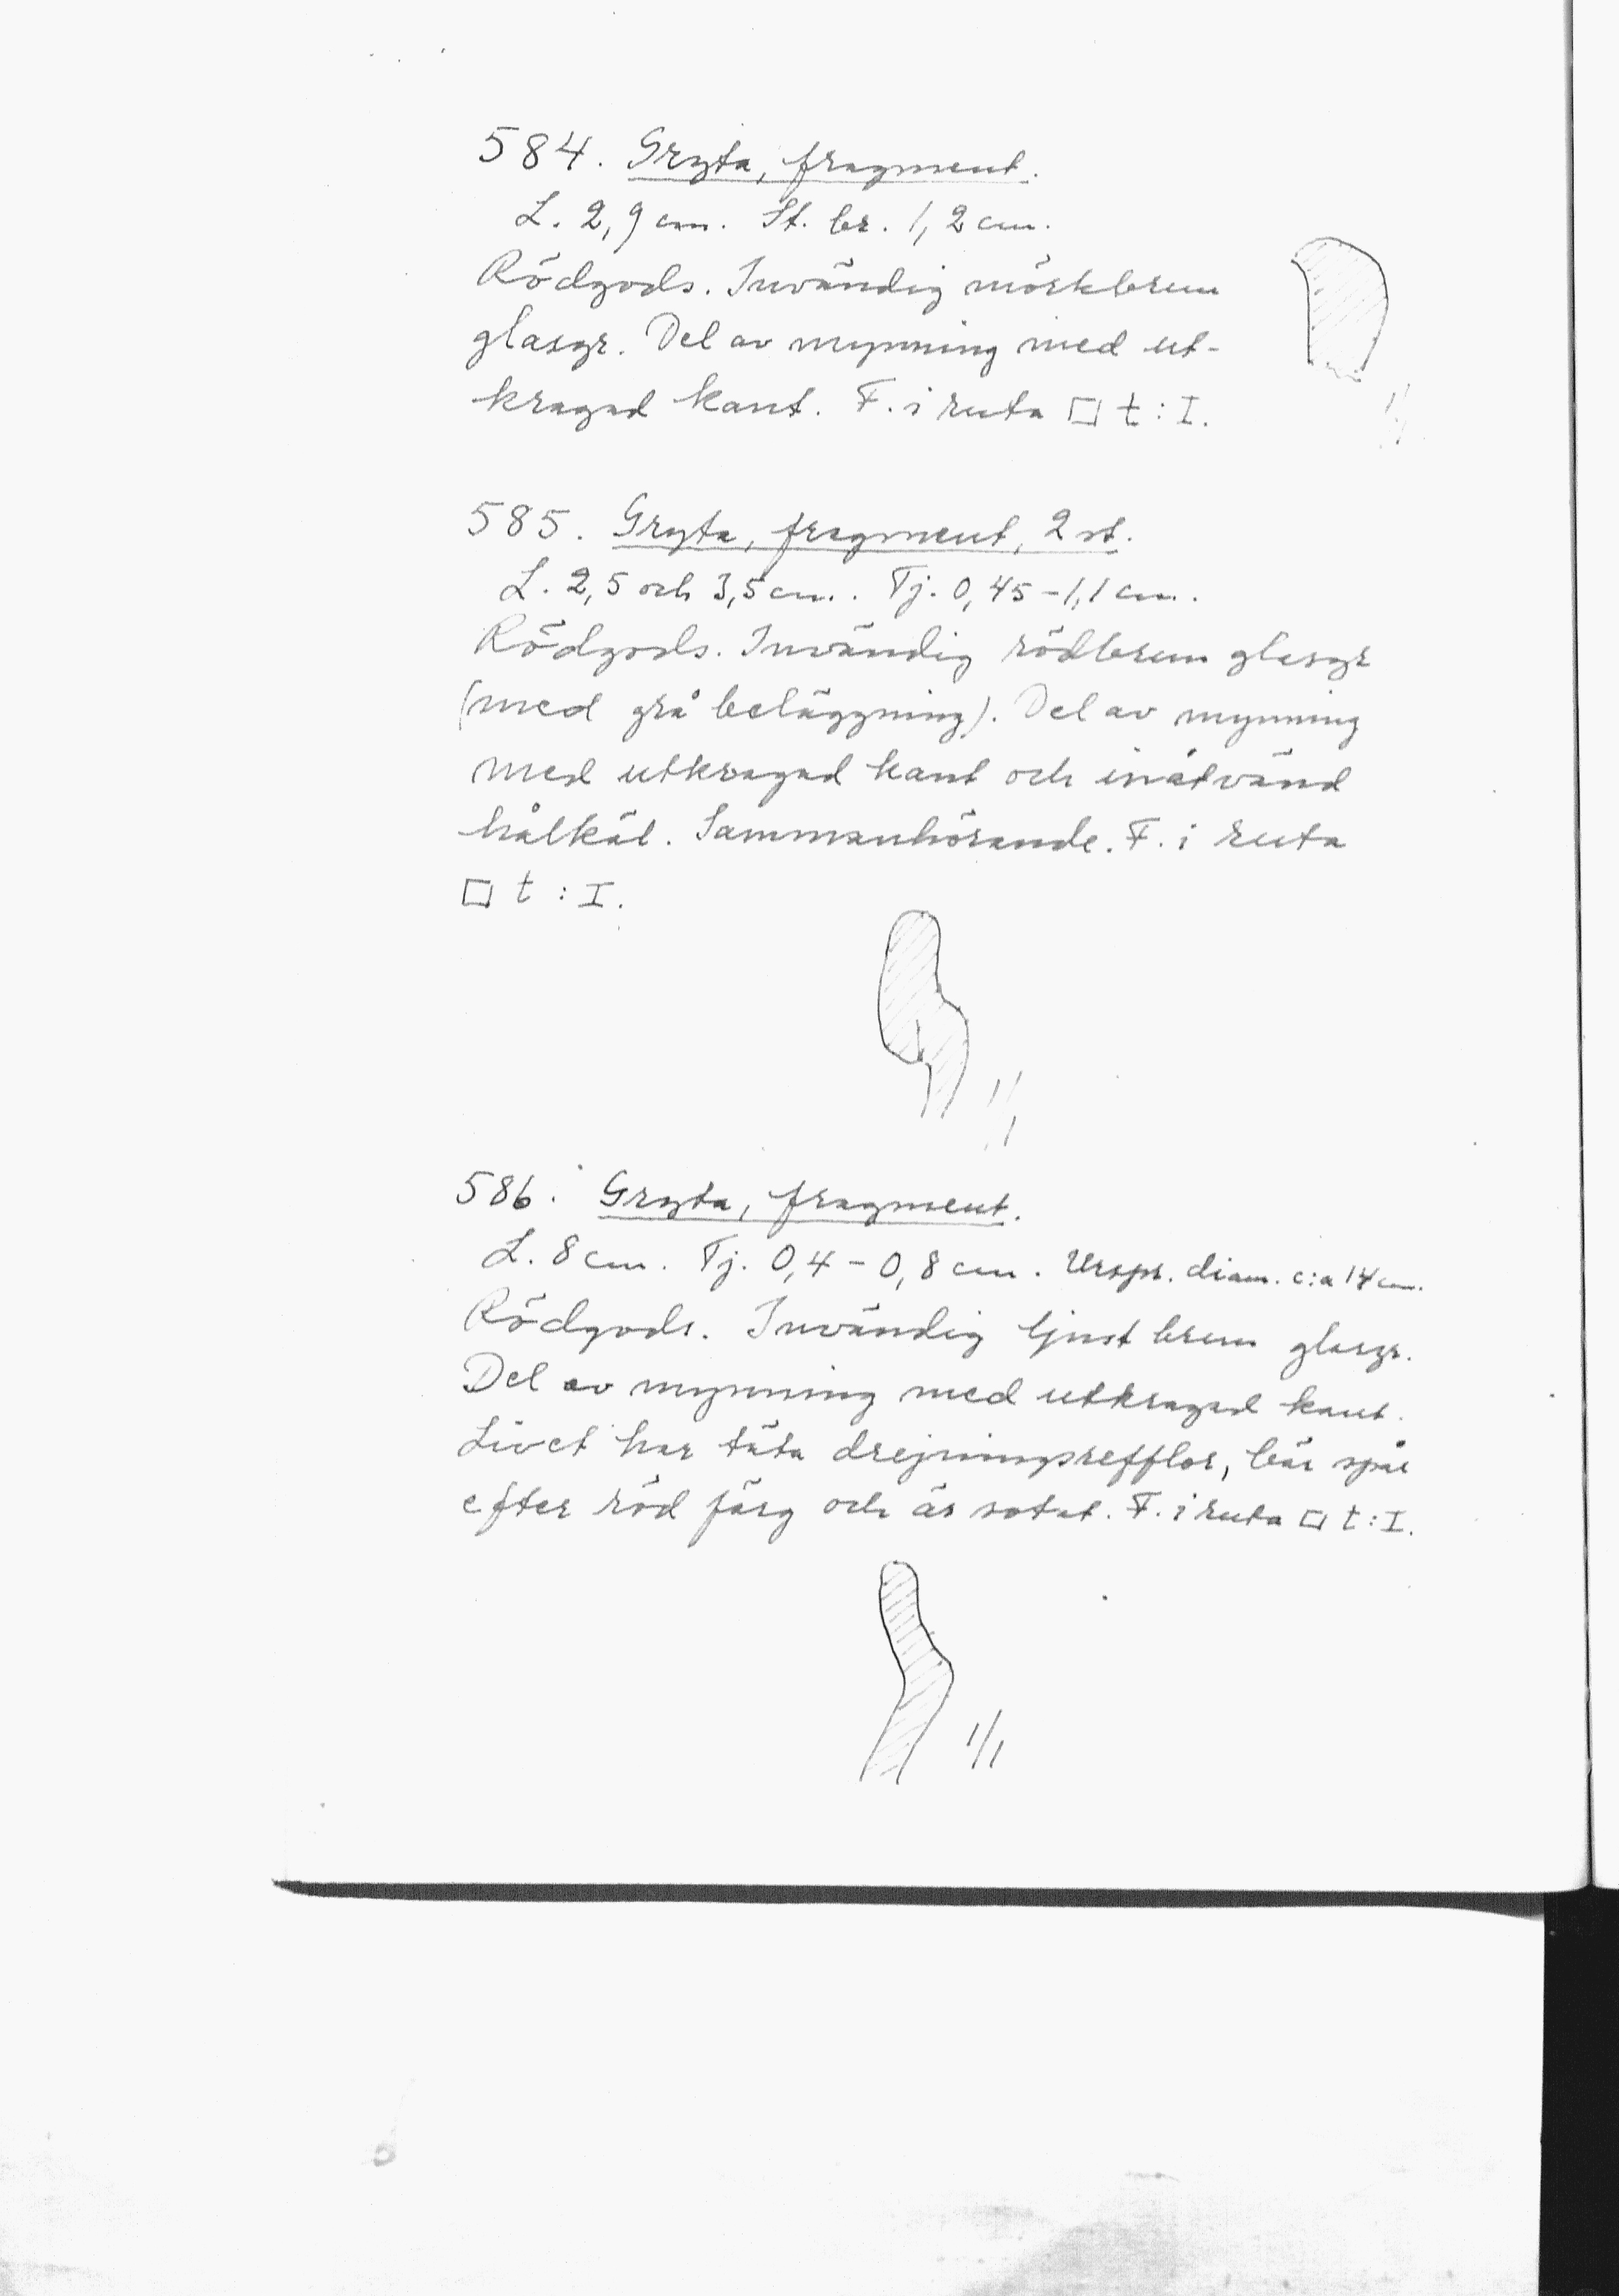 584. Gryta, fragment.
L. 2,9 cm. St. br. 1,2 cm.
Rödgods. Invändig mörkbrun
glasyr. Del av mynning med ut-
kragad kant. F. i ruta □ t : I.
1/1
585. Gryta, fragment, 2 st.
L. 2,5 och 3,5 cm. Tj. 0,45 – 1,1 cm.
Rödgods. Invändig rödbrun glasyr
(med grå beläggning). Del av mynning
med utkragad kant och inåtvänd
hålkäl. Sammanhörande. F. i ruta
□ t : I.
1/1
586. Gryta, fragment.
L. 8 cm. Tj. 0,4 – 0,8 cm. Urspr. diam. c:a 14 cm.
Rödgods. Invändig ljust brun glasyr.
Del av mynning med utkragad kant.
Livet har täta drejningsrefflor, bär spår
efter röd färg och är sotat. F. i ruta □ t : I.
1/1